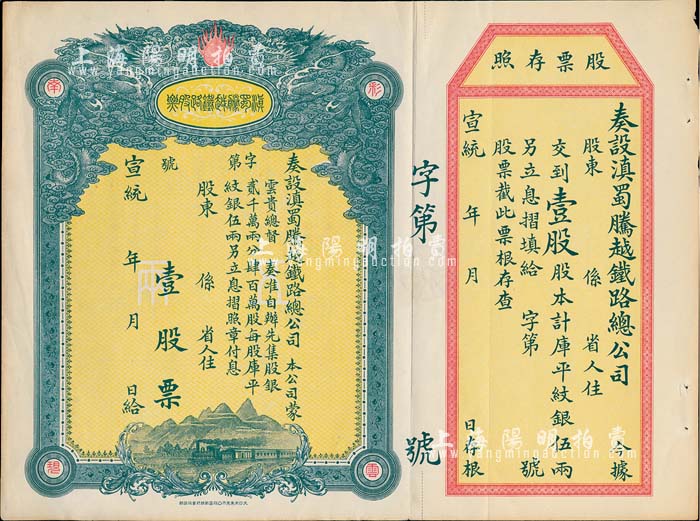 股票存照
奏設滇蜀騰越鐵路總公司 今據
股東 係 省人住
交到壹股股本計庫平紋銀伍兩
另立息摺填給 字第 號
股票截此票根存查
宣統 年 月 日存根
字第 號
滇蜀騰越鐵路股票
彩
南
雲
碧
奏設滇蜀騰越鐵路總公司 本公司蒙
雲貴總督 奏准自辦先集股銀
貳千萬兩分肆百萬股每股庫平
紋銀伍兩另立息摺照章付息
字第 號
股東 係 省人住
壹股票
宣統 年 月 日給
上海陽明拍賣
www.yangmingauction.com
上海陽明拍賣
www.yangmingauction.com
上海陽明拍賣
www.yangmingauction.com